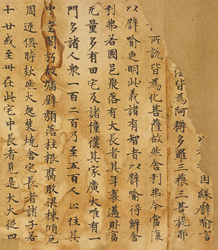 因緣譬喻
皆為阿耨多羅三藐三菩提耶
所說皆為化菩薩故然舍利弗今當復
以譬喻更明此義諸有智者以譬喻得解舍
利弗若國邑聚落有大長者其年衰邁財富
无量多有田宅及諸僮僕其家廣大唯有一
門多諸人衆一百二百乃至五百人止住其
中堂閣朽故墻壁頹落柱根腐敗梁棟傾危
周迊俱時欻然火起焚燒舍宅長者諸子若
十廿或至卅在此宅中長者見是大火從四